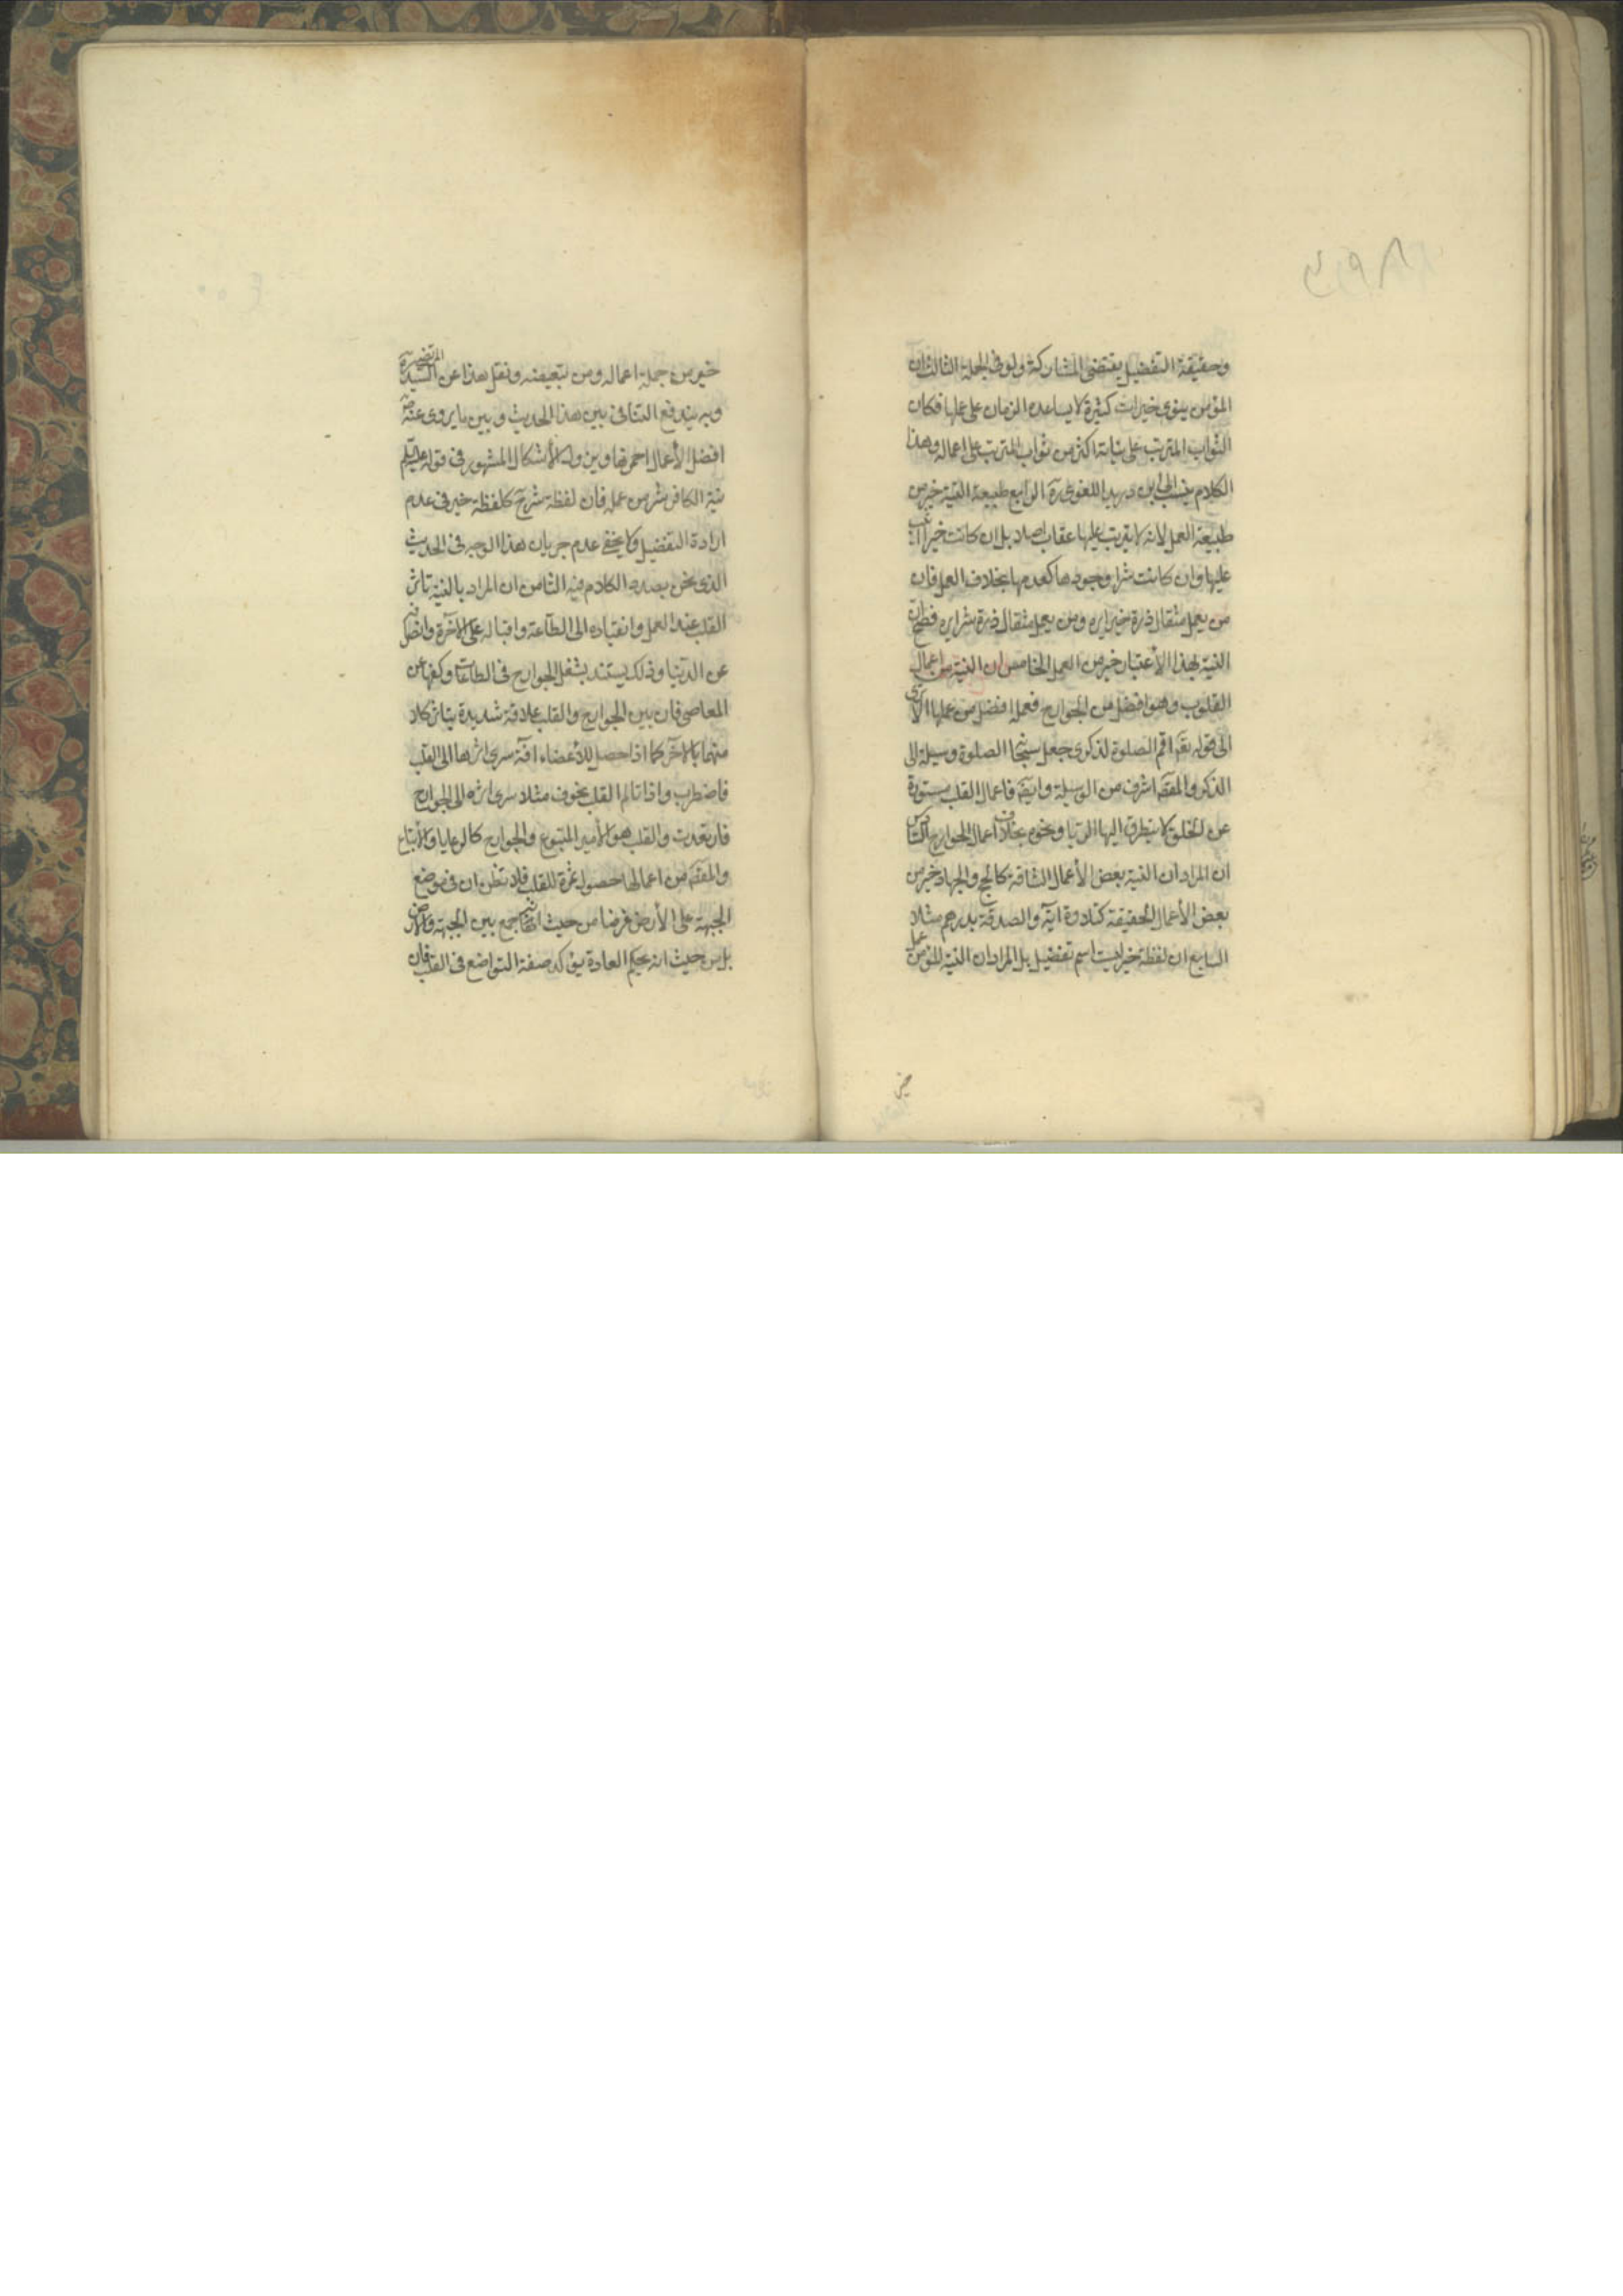 وحقيقة التفضيل يقتضى المشاركة ولو فى الجملة الثالث ان
المؤمن ينوى خيرات كثيرة لا يساعده الزمان على عملها فكان
الثواب المترتب على نياته اكثر من ثواب المترتب على اعماله وهذا
الكلام ينسب الى ابن دريد اللغوى ره الرابع طبيعة النية خير من
طبيعة العمل لانه لا يترتب عليها عقاب اصلا بل ان كانت خيرا اثيب
عليها وان كانت شرا وجودها كعدمها بخلاف العمل فان
من يعمل مثقال ذرة خيرا يره ومن يعمل مثقال ذرة شرا يره فصح ان
النية بهذا الأعتبار خير من العمل الخامس ان النية من اعمال
القلوب وهو افضل من الجوارح فعمله افضل من عملها الا ترى
الى قوله تعَ اقم الصلوة لذكرى جعل سبحنه الصلوة وسيلة الى
الذكر والمقصَ اشرف من الوسيلة وايضَ فاعمال القلب مستورة
عن الخلق لا يتطرق اليها الريا ونحوه بخلاف اعمال الجوارح السادس
ان المراد ان النية بعض الأعمال الشاقة كالحج والجهاد خير من
بعض الأعمال الخفيفة كتلاوة اية والصدقة بدرهم مثلا
السابع ان لفظة خير ليست اسم تفضيل بل المراد ان النية المؤمن عمل
خير من جملة اعماله ومن تبعيضه ونقل هذا عن السيد المرتضى ره
وبه يندفع التنافى بين هذا الحديث وبين ما يروى عنه ص
افضل الأعمال احمزها ويزول الأشكال المشهور فى قوله
نية الكافر شر من عمله فان لفظة شر ح كلفظة خير فى عدم
ارادة التفضيل ولا يخفى عدم جريان هذا الوجه فى الحديث
الذى نحن بصدد الكلام فيه الثامن ان المراد بالنية تاثر
القلب عند العمل وانقياده الى الطاعة واقباله على الاخرة وانصرافه
عن الدنيا وذلك يستند بشغل الجوارح فى الطاعات وكفها عن
المعاصى فان بين الجوارح والقلب علاقة شديدة يتاثر كلا
منهما بالاخر كما اذا حصل للأعضاء افة سرى اثرها الى القلب
فاضطرب واذا تالم القلب بخوف مثلا سرى اثره الى الجوارح
فارتعدت والقلب هو الأمير المتبوع والجوارح كالرعايا والأتباع
والمقصَ من اعمالها حصول ثمرة للقلب فلا تظن ان فى وضع
الجبهة على الأرض غرضا من حيث انه جمع بين الجبهة والارض
بل من حيث انه بحكم العادة يؤكد صفة التواضع فى القلب فان